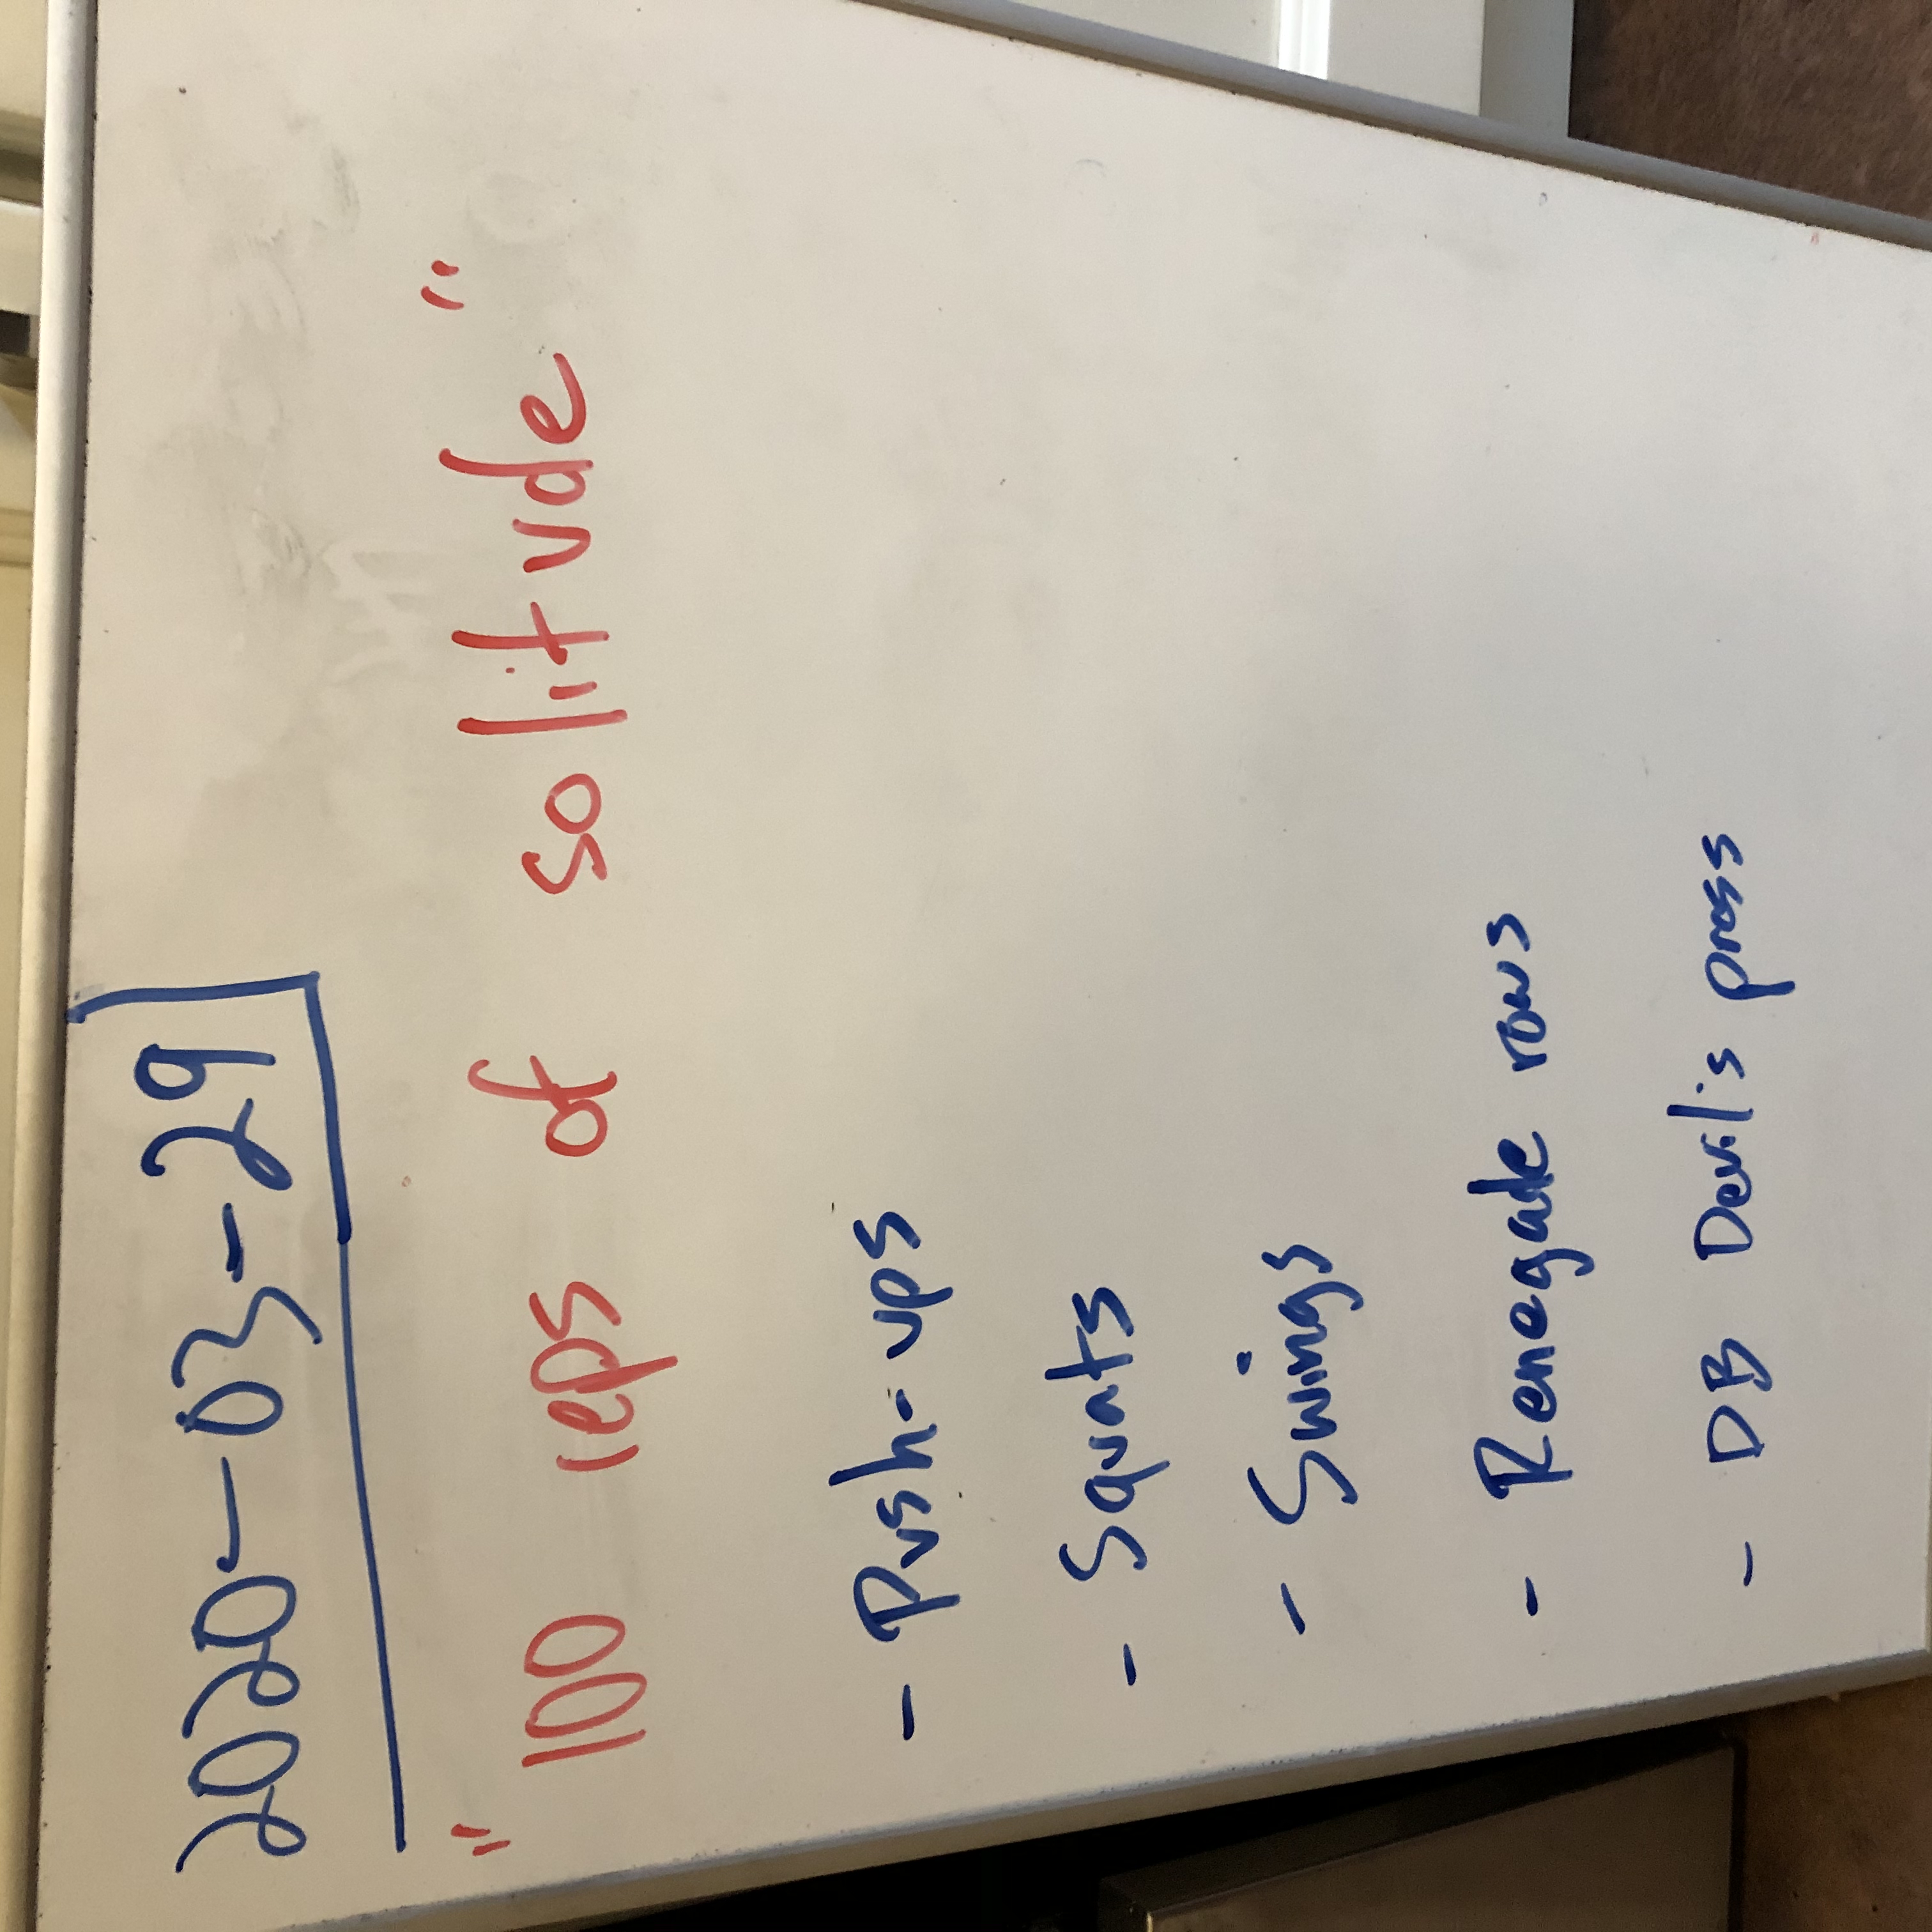 2020-03-29
"100 reps of solitude"
- Push-ups
- Squats
- Swings
- Renegade rows
- DB Devil's press